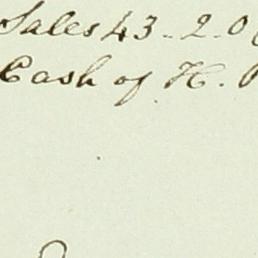 Sales 43 - 2 - 0
Cash of H.